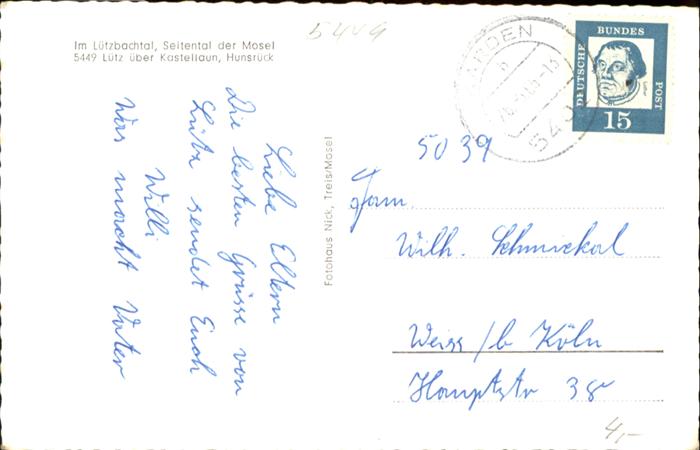 5449
Im Lützbachtal, Seitental der Mosel
5449 Lütz über Kastellaun, Hunsrück
Liebe Eltern
Die besten Grüsse von
Lütz sendet Euch
Willi
Was macht Vater
Fotohaus Nick, Treis/Mosel
KARDEN
b
540
DEUTSCHE
BUNDES
POST
Luther
15
5039
Fam.
Wilh. Schmickal
Weiss /b Köln
Hauptstr
4,-